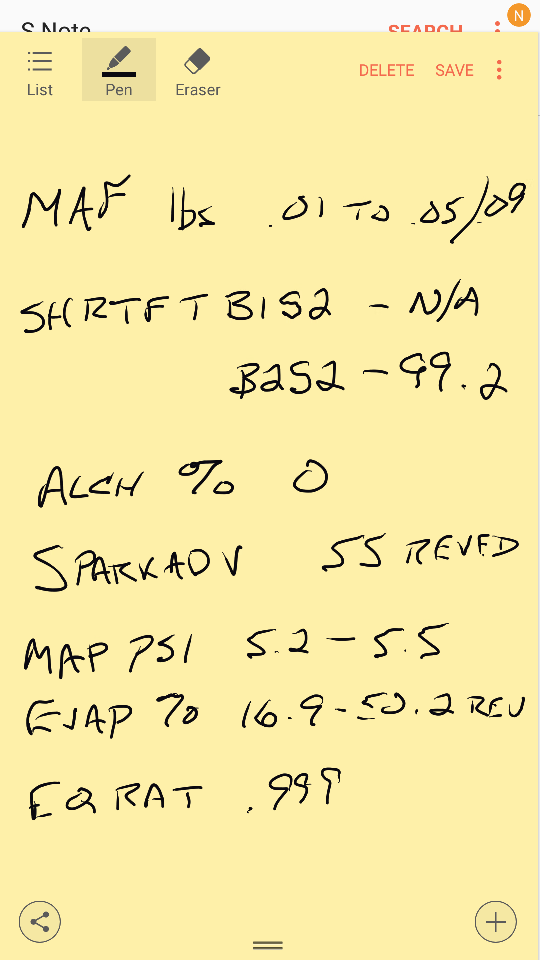 S Note
SEARCH
N
List
Pen
Eraser
DELETE SAVE
MAF lbs .01 TO .05/.09
SHRTFT B1S2 - N/A
B2S2 - 99.2
ALCH % 0
SPARKADV 55 REVED
MAP PSI 5.2 - 5.5
EVAP % 16.9 - 50.2 REV
EQ RAT .999